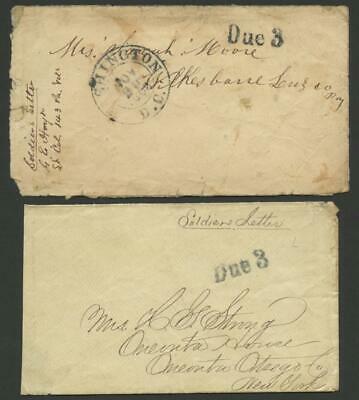 Due 3
Mrs Sarah Moore
Wilkesbarre Luz co
Pa
WASHINGTON
D.C.
NOV
Soldiers Letter
Lt Col 143 Pa Vol
Soldiers Letter
Due 3
Mrs H. G. Strong
Oneonta House
Oneonta Otsego Co
New York